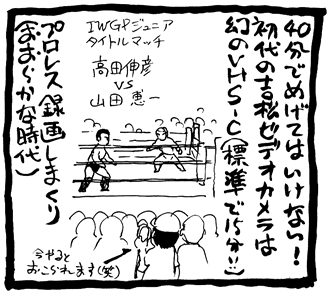 40分でめげてはいけない!
初代の吉松ビデオカメラは
幻のVHS-C(標準で15分!!)
IWGPジュニア
タイトルマッチ
高田伸彦
VS
山田恵一
プロレス録画しまくり
(おおらかな時代)
今やると
おこられます(笑)